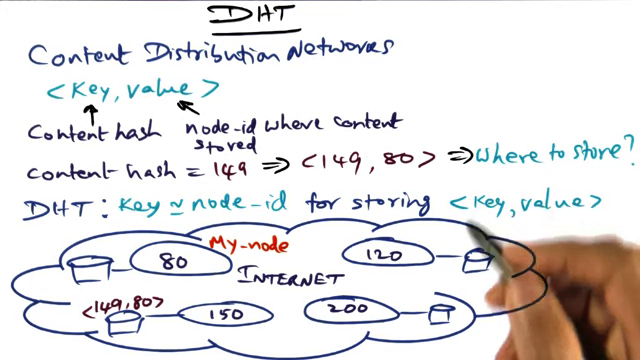 DHT
Content Distribution Networks
<Key, value>
Content hash node-id where content stored
content hash = 149 ⇒ <149, 80> ⇒ Where to store?
DHT: Key ≃ node-id for storing <Key, value>
My-node
80
120
INTERNET
<149, 80>
150
200